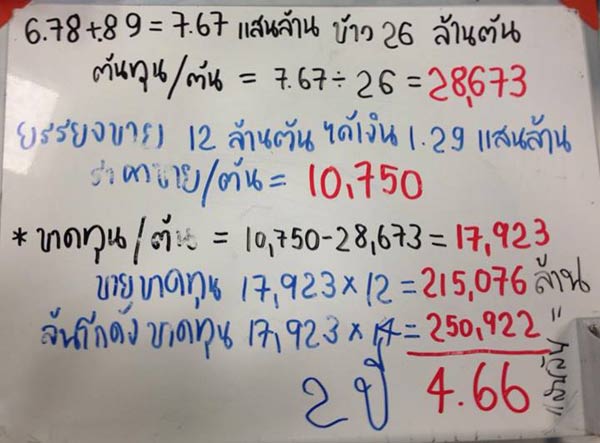 6.78+.89 = 7.67 แสนล้าน ข้าว 26 ล้านตัน
ต้นทุน/ตัน = 7.67÷26 = 28,673
12 ล้านตัน ได้เงิน 1.29 แสนล้าน
ราคาขาย/ตัน = 10,750
* ขาดทุน/ตัน = 10,750-28,673 = 17,923
ขายขาดทุน 17,923 x 12 = 215,076 ล้าน
ขาดทุน 17,923 x 14 = 250,922 "
2 ปี 4.66 แสนล้าน